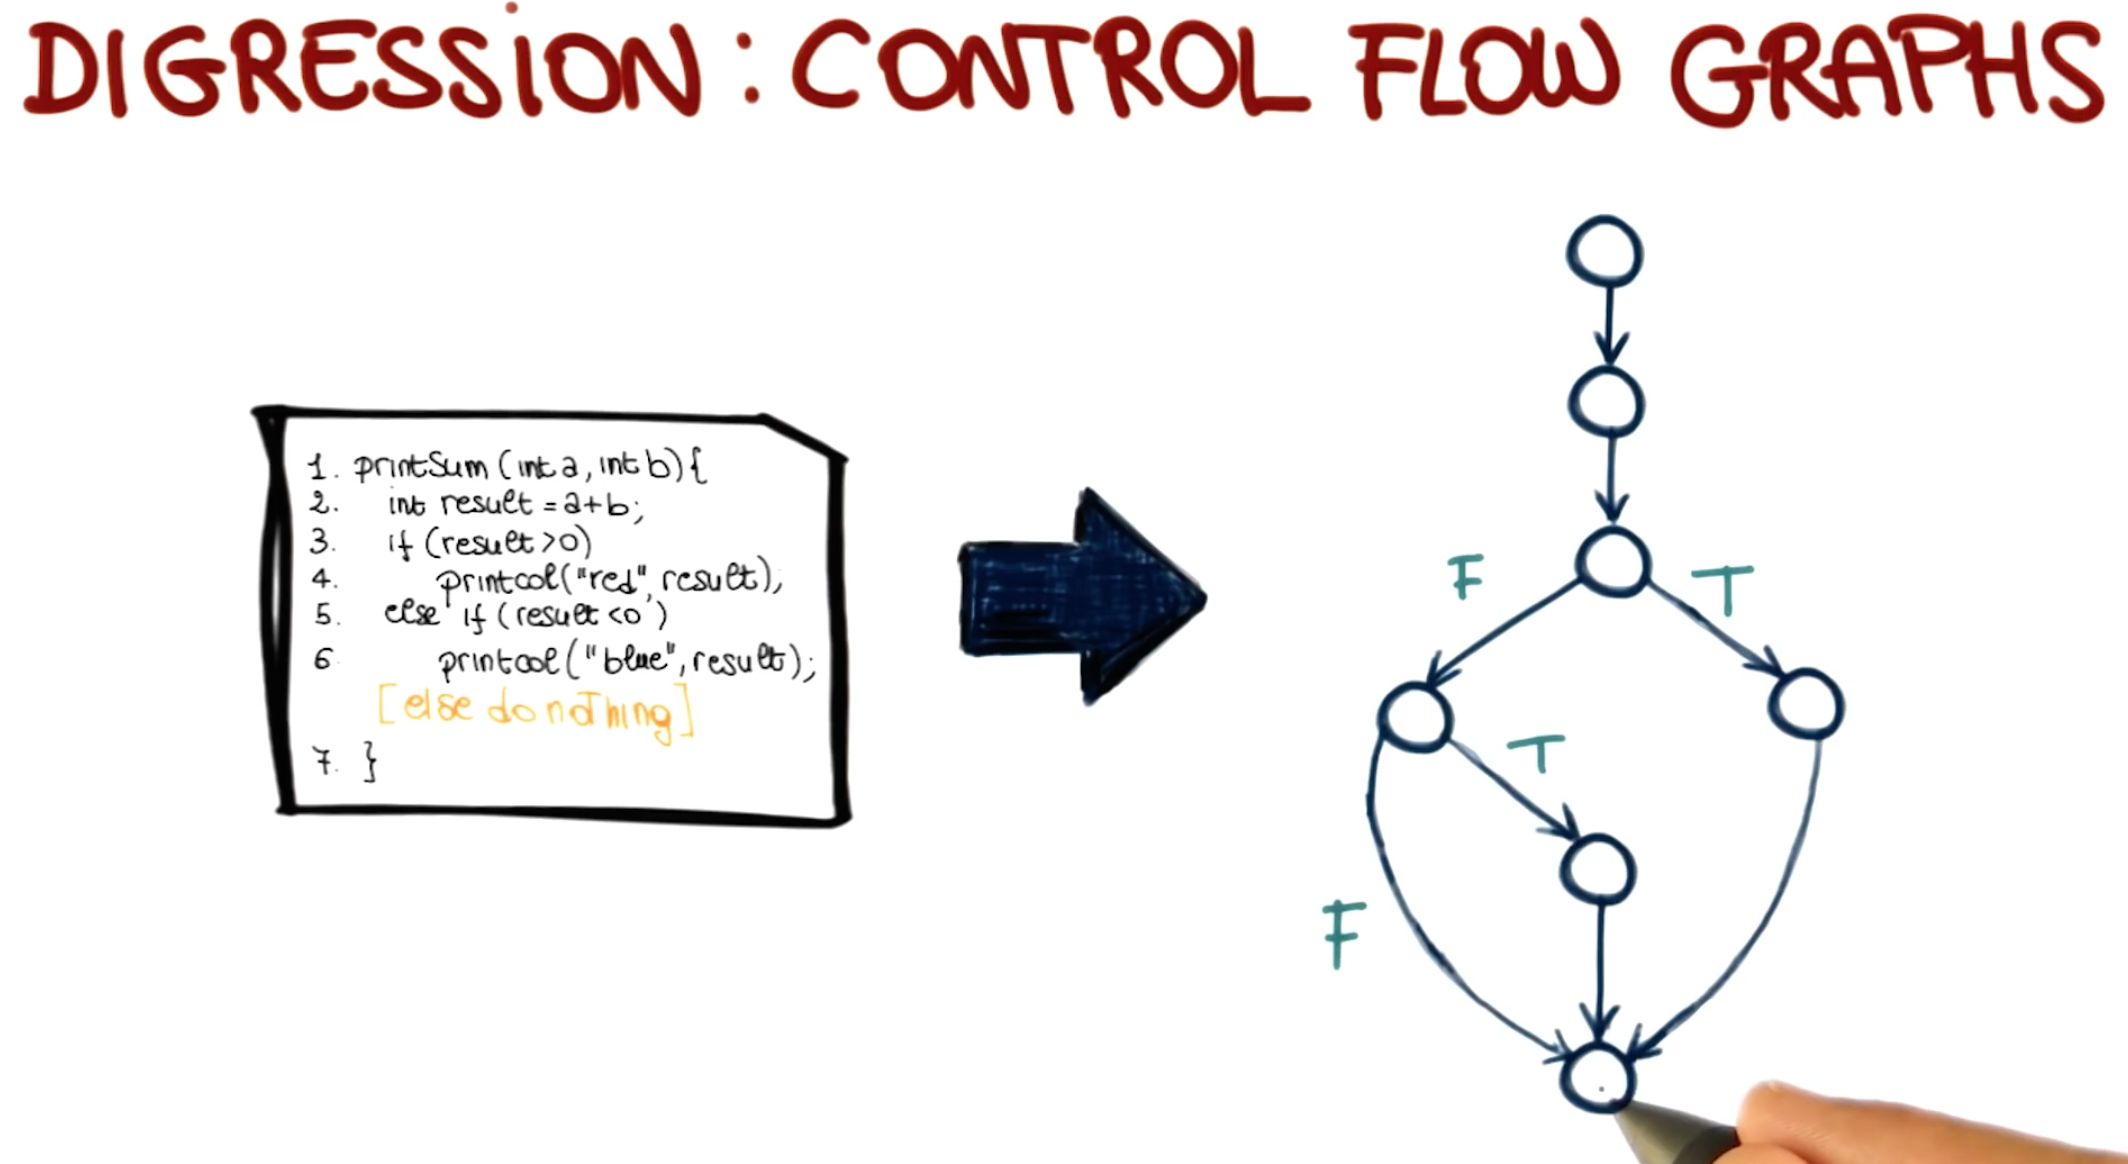 DIGRESSION: CONTROL FLOW GRAPHS
1. printSum (int a, int b){
2. int result = a+b;
3. if (result >0)
4. printcol("red", result);
5. else if (result <0)
6. printcol("blue", result);
[else do nothing]
7. }
F
T
T
F